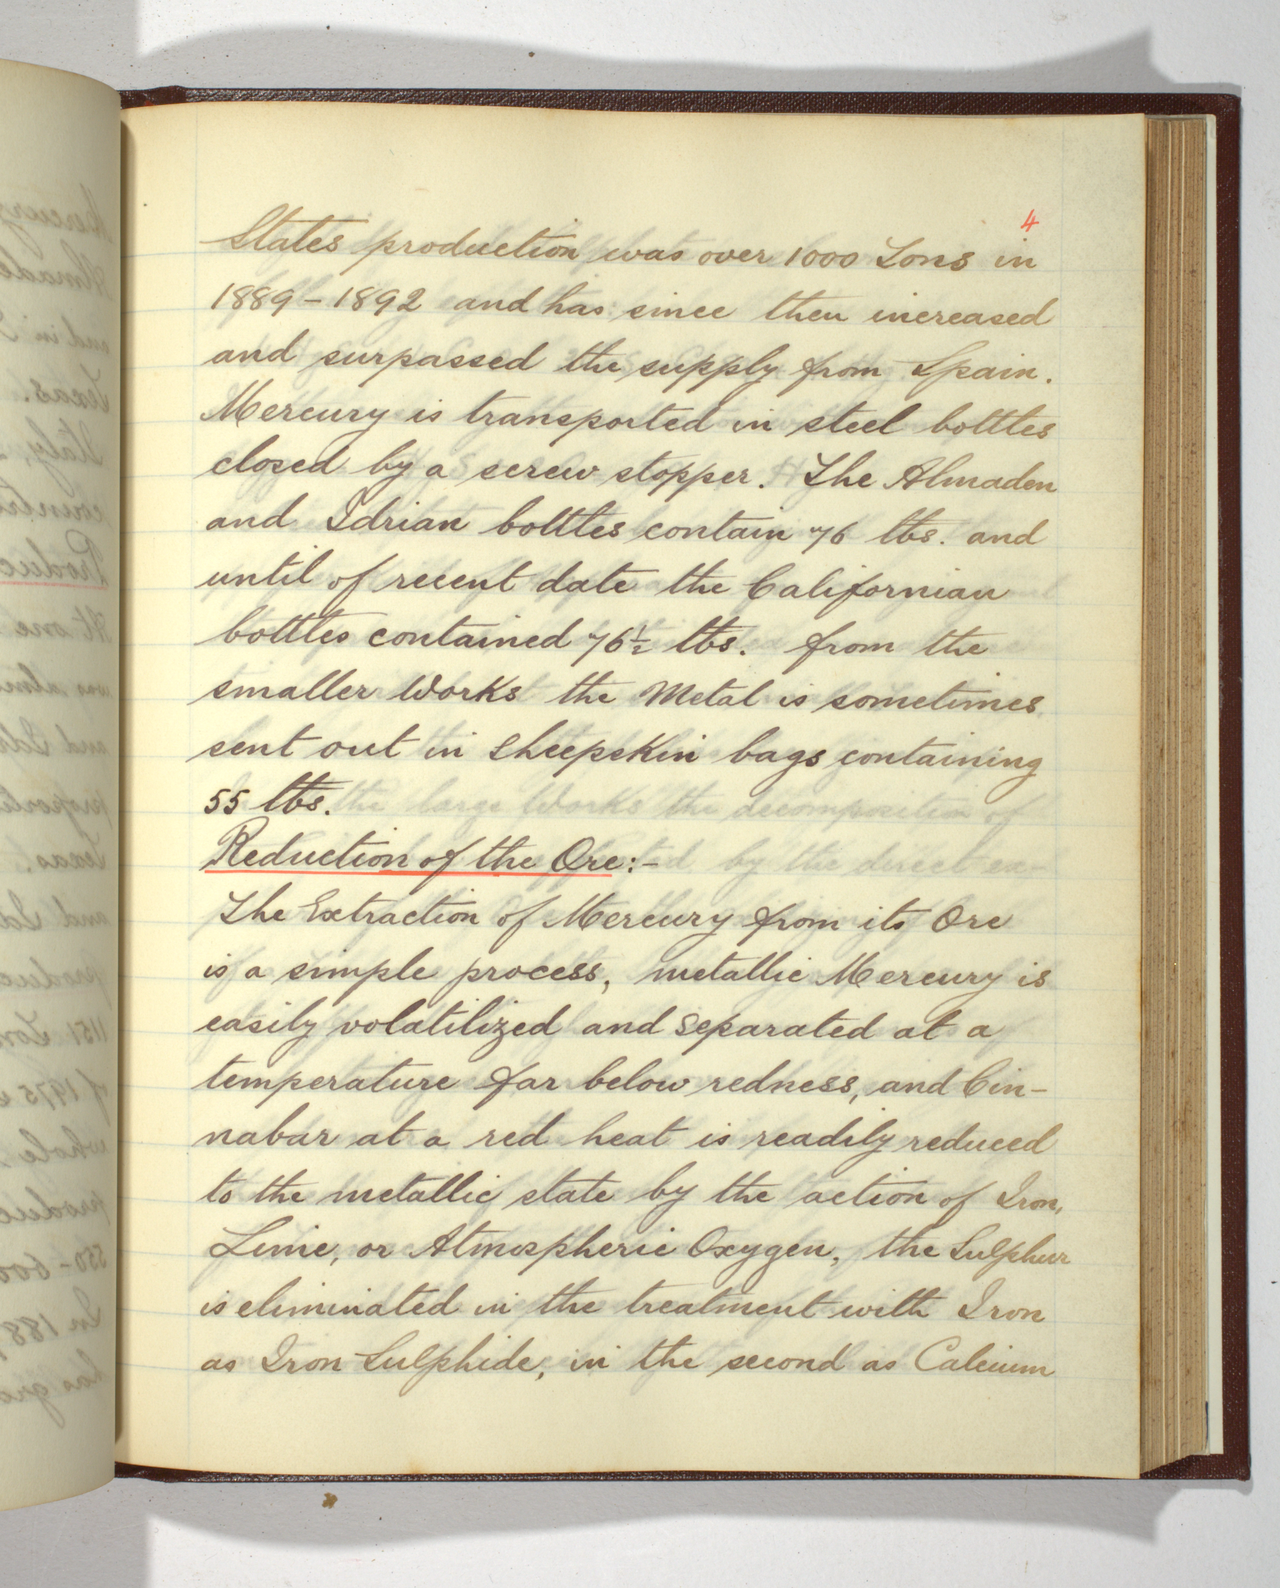 4
States production was over 1000 Tons in
1889 - 1892 and has since then increased
and surpassed the supply from Spain.
Mercury is transported in steel bottles
closed by a screw stopper. The Almaden
and Idrian bottles contain 76 lbs. and
until of recent date the Californian
bottles contained 76½ lbs. from the
smaller Works the Metal is sometimes
sent out in Sheepskin bags containing
55 lbs.
Reduction of the Ore:-
The Extraction of Mercury from its Ore
is a simple process, metallic Mercury is
easily volatilized and separated at a
temperature far below redness, and Cin-
nabar at a red heat is readily reduced
to the metallic state by the action of Iron,
Lime, or Atmospheric Oxygen, the Sulphur
is eliminated in the treatment with Iron
as Iron Sulphide, in the second as Calcium